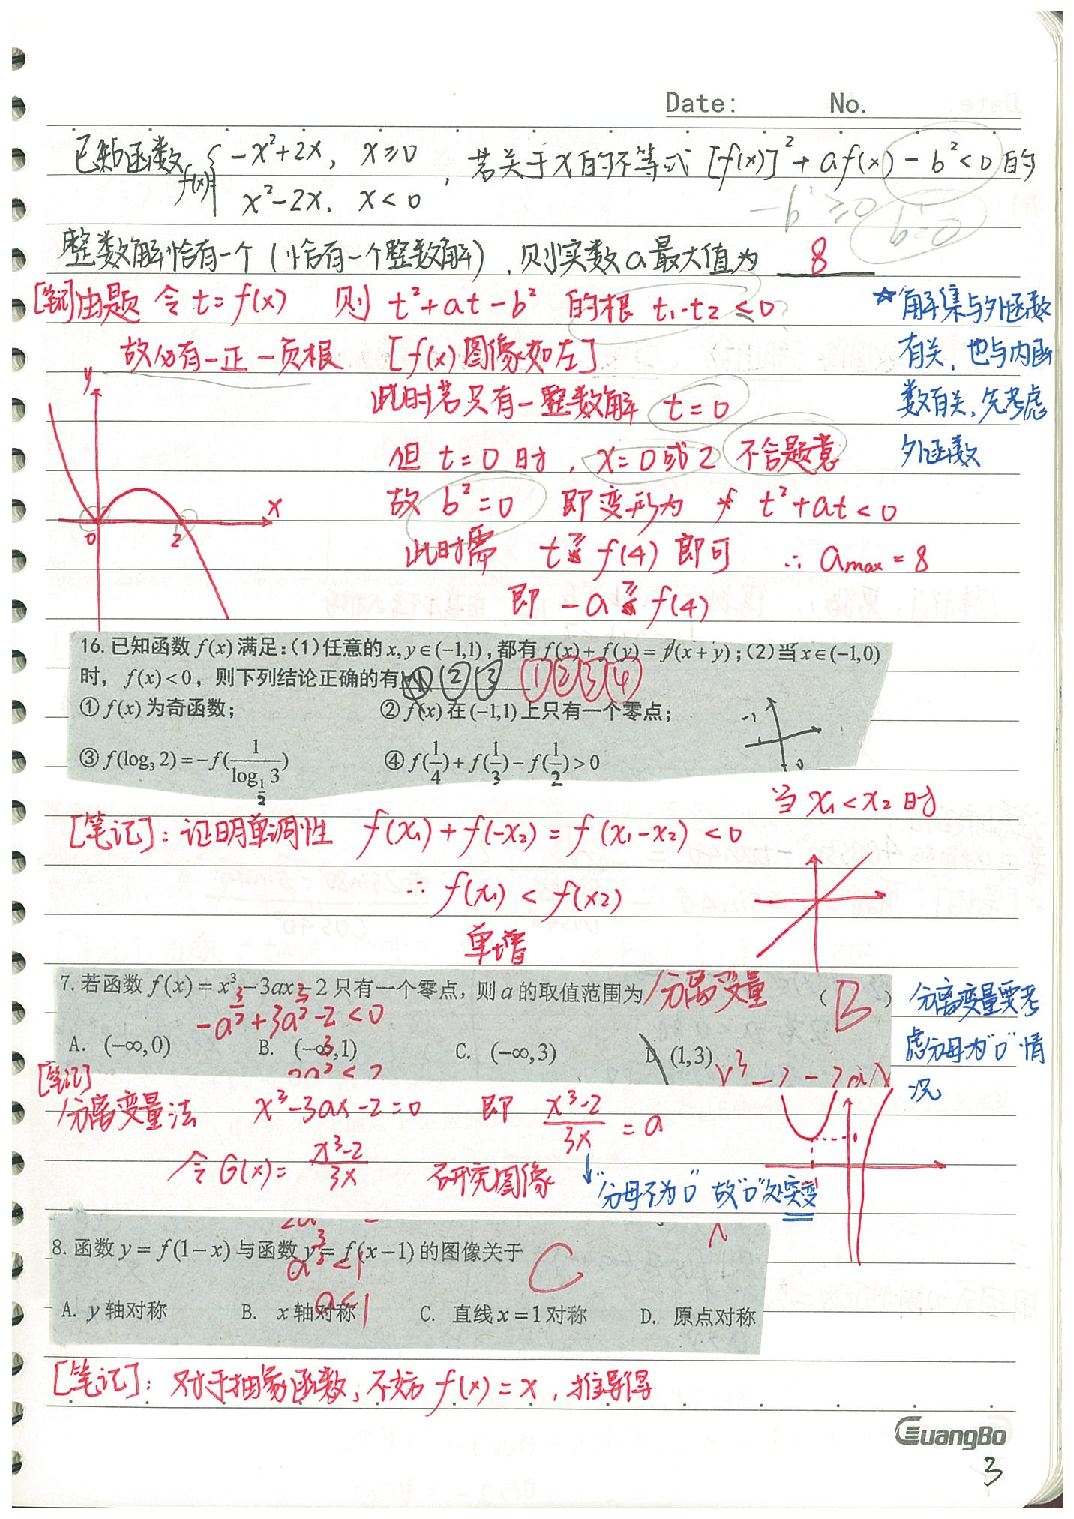 Date: No.
已知函数 f(x) { -x²+2x, x≥0 , 若关于x的不等式 [f(x)]²+af(x)-b²<0 的
x²-2x, x<0
整数解恰有一个 (恰有一个整数解), 则实数a最大值为 8
[笔记] 由题 令 t=f(x) 则 t²+at-b² 的根 t₁·t₂<0
☆解集与外函数
有关, 也与内函
数有关, 先考虑
外函数
故必有一正一负根 [f(x)图像如左]
此时若只有一整数解 t=0
但 t=0 时, x=0或2 不合题意
故 b²=0 即变形为 t²+at<0
此时需 t≥f(4) 即可 ∴ a max=8
即 -a≥f(4)
y
x
0 2
16. 已知函数 f(x) 满足: (1)任意的 x, y∈(-1,1), 都有 f(x)+f(y)=f(x+y); (2)当 x∈(-1,0)
时, f(x)<0, 则下列结论正确的有 ① ② ③ ①②③④
① f(x) 为奇函数; ② f(x) 在 (-1,1) 上只有一个零点;
③ f(log₃2)=-f(1/log_{1/2}3) ④ f(1/4)+f(1/3)-f(1/2)>0
-1
0
当 x₁<x₂ 时
[笔记]: 证明单调性 f(x₁)+f(-x₂)=f(x₁-x₂)<0
∴ f(x₁)<f(x₂)
单增
7. 若函数 f(x)=x³-3ax-2 只有一个零点, 则 a 的取值范围为 分离变量 ( B )
A. (-∞,0) B. (-∞,1) C. (-∞,3) D. (1,3)
分离变量要考
虑分母为"0"情
况
[笔记]
分离变量法 x³-3ax-2=0 即 x³-2/3x = a
令 G(x)= x³-2/3x 研究图像
"分母不为0" 故"0"处突变
8. 函数 y=f(1-x) 与函数 y=f(x-1) 的图像关于 C
a<1
A. y 轴对称 B. x 轴对称 C. 直线 x=1 对称 D. 原点对称
[笔记]: 对于抽象函数, 不妨 f(x)=x, 推导得
GuangBo
3